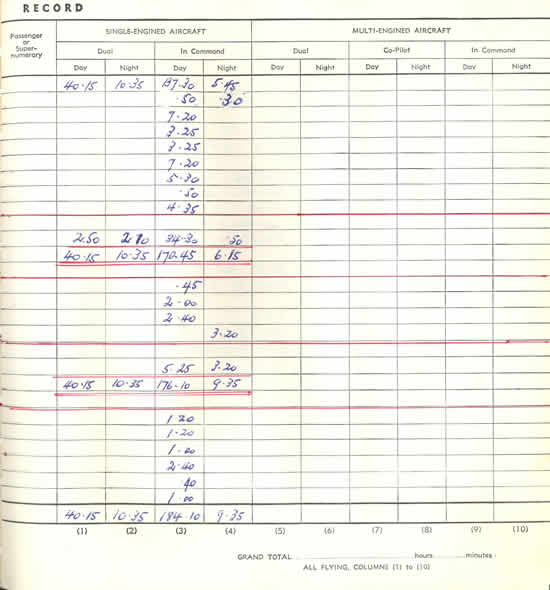 RECORD
Passenger or Super-numerary
SINGLE-ENGINED AIRCRAFT MULTI-ENGINED AIRCRAFT
Dual In Command Dual Co-Pilot In Command
Day Night Day Night Day Night Day Night Day Night
40·15 10·35 137·30 5·45
·50 ·30
7·20
3·25
3·25
7·20
5·30
·50
4·35
2·50 2·10 34·30
40·15 10·35 170·45 6·15
·45
2·00
2·40
3·20
5·25 3·20
40·15 10·35 176·10 9·35
1·20
1·20
1·00
2·40
·40
1·00
40·15 10·35 184·10 9·35
(1) (2) (3) (4) (5) (6) (7) (8) (9) (10)
GRAND TOTAL hours minutes
ALL FLYING, COLUMNS (1) to (10)